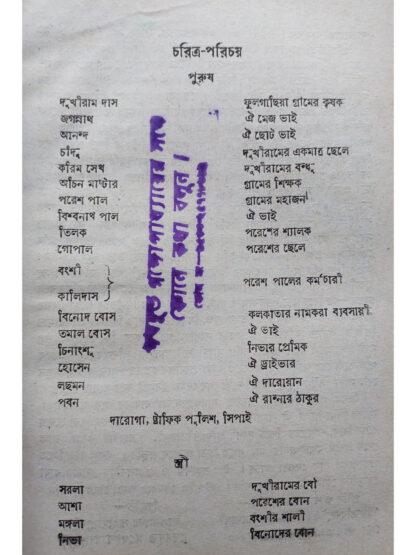 চরিত্র-পরিচয়
পুরুষ
দুখীরাম দাস ফুলগাছিয়া গ্রামের কৃষক
জগন্নাথ ঐ মেজ ভাই
আনন্দ ঐ ছোট ভাই
চাঁদু দুখীরামের একমাত্র ছেলে
করিম সেখ দুখীরামের বন্ধু
অচিন মাস্টার গ্রামের শিক্ষক
পরেশ পাল গ্রামের মহাজন
বিশ্বনাথ পাল ঐ ভাই
তিলক পরেশের শ্যালক
গোপাল পরেশের ছেলে
বংশী
কালিদাস পরেশ পালের কর্মচারী
বিনোদ বোস কলকাতার নামকরা ব্যবসায়ী
তমাল বোস ঐ ভাই
চিনাংশু নিভার প্রেমিক
হোসেন ঐ ড্রাইভার
লছমন ঐ দারোয়ান
পবন ঐ রান্নার ঠাকুর
দারোগা, ট্রাফিক পুলিশ, সিপাই
স্ত্রী
সরলা দুখীরামের বৌ
আশা পরেশের বোন
মঙ্গলা বংশীর শালী
নিভা বিনোদের বোন
ফোনে কথা বলুন।